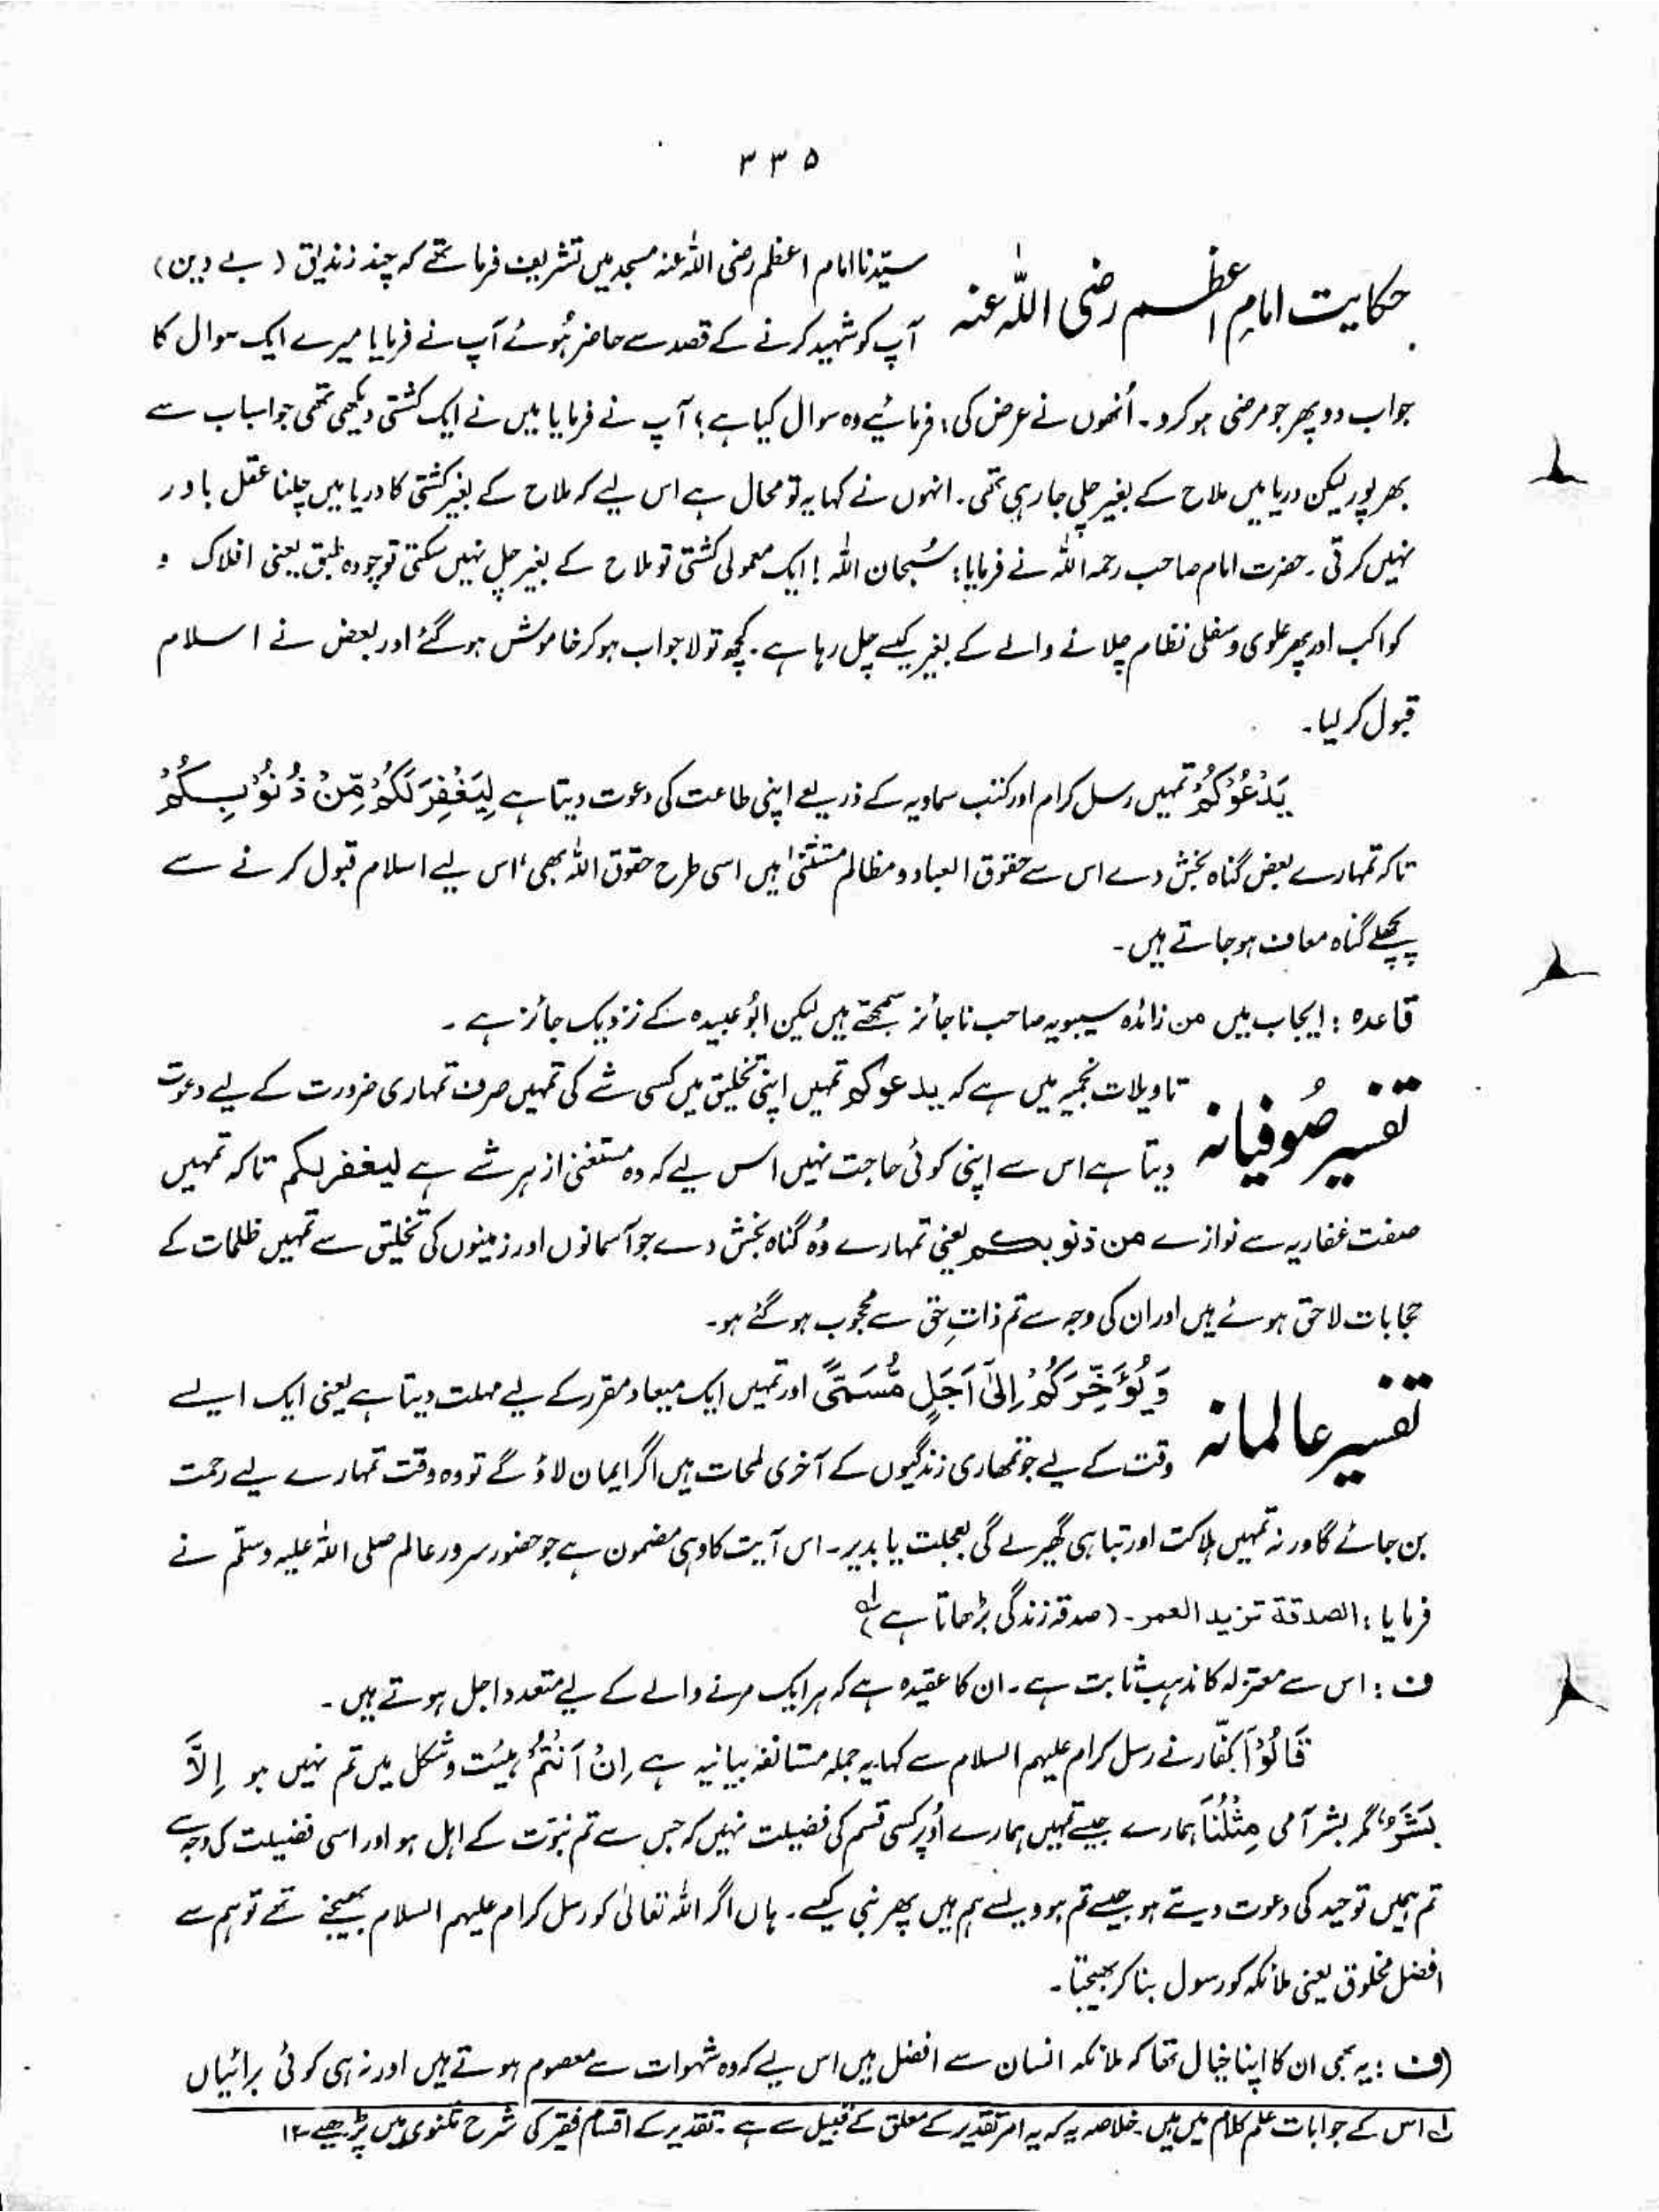 ۳۳۵
حکایت امامِ اعظم رضی اللہ عنہ
سیّدنا امام اعظم رضی اللہ عنہ مسجد میں تشریف فرما تھے کہ چند زندیق (بے دین)
آپ کو شہید کرنے کے قصد سے حاضر ہُوئے آپ نے فرمایا میرے ایک سوال کا
جواب دو پھر جو مرضی ہو کرو۔ اُنھوں نے عرض کی: فرمائیے وہ سوال کیا ہے؟ آپ نے فرمایا میں نے ایک کشتی دیکھی تھی جو اسباب سے
بھرپور لیکن دریا میں ملاح کے بغیر چلی جا رہی تھی۔ انہوں نے کہا یہ تو محال ہے اس لیے کہ ملاح کے بغیر کشتی کا دریا میں چلنا عقل باور
نہیں کرتی۔ حضرت امام صاحب رحمہ اللہ نے فرمایا: سُبحان اللہ! ایک معمولی کشتی تو ملاح کے بغیر چل نہیں سکتی تو چودہ طبق یعنی افلاک و
کواکب اور پھر علوی و سفلی نظام چلانے والے کے بغیر کیسے چل رہا ہے۔ کچھ تو لاجواب ہو کر خاموش ہو گئے اور بعض نے اسلام
قبول کر لیا۔
یَدْعُوْكُمْ تمہیں رسل کرام اور کتب سماویہ کے ذریعے اپنی طاعت کی دعوت دیتا ہے لِیَغْفِرَ لَكُمْ مِّنْ ذُنُوْبِكُمْ
تاکہ تمہارے بعض گناہ بخش دے اس سے حقوق العباد و مظالم مستثنیٰ ہیں اسی طرح حقوق اللہ بھی، اس لیے اسلام قبول کرنے سے
پچھلے گناہ معاف ہو جاتے ہیں۔
قاعدہ: ایجاب میں من زائدہ سیبویہ صاحب ناجائز سمجھتے ہیں لیکن ابُو عبیدہ کے نزدیک جائز ہے۔
تفسیر صُوفیانہ
تاویلات نجمیہ میں ہے کہ یدعوکم تمہیں اپنی تخلیق میں کسی شے کی تمہیں صرف تمہاری ضرورت کے لیے دعوت
دیتا ہے اس سے اپنی کوئی حاجت نہیں اس لیے کہ وہ مستغنی از ہر شے ہے لیغفرلکم تاکہ تمہیں
صفت غفاریہ سے نوازے من ذنوبکم یعنی تمہارے وُہ گناہ بخش دے جو آسمانوں اور زمینوں کی تخلیق سے تمہیں ظلمات کے
حجابات لاحق ہوئے ہیں اور ان کی وجہ سے تم ذاتِ حق سے محجوب ہو گئے ہو۔
تفسیر عالمانہ
وَیُؤَخِّرَكُمْ اِلٰۤی اَجَلٍ مُّسَمًّی اور تمہیں ایک میعاد مقرر کے لیے مہلت دیتا ہے یعنی ایک ایسے
وقت کے لیے جو تمھاری زندگیوں کے آخری لمحات ہیں اگر ایمان لاؤ گے تو وہ وقت تمہارے لیے رحمت
بن جائے گا ورنہ تمہیں ہلاکت اور تباہی گھیر لے گی بعجلت یا بدیر۔ اس آیت کا وہی مضمون ہے جو حضور سرور عالم صلی اللہ علیہ وسلّم نے
فرمایا: الصدقة تزید العمر۔ (صدقہ زندگی بڑھاتا ہے)لہ
ف: اس سے معتزلہ کا مذہب ثابت ہے۔ ان کا عقیدہ ہے کہ ہر ایک مرنے والے کے لیے متعدد اجل ہوتے ہیں۔
قَالُوْۤا کفّار نے رسل کرام علیہم السلام سے کہا یہ جملہ مستانفہ بیانیہ ہے اِنْ اَنْتُمْ ہیئت و شکل میں تم نہیں ہو اِلَّا
بَشَرٌ مگر بشر آدمی مِثْلُنَا ہمارے جیسے تمہیں ہمارے اُوپر کسی قسم کی فضیلت نہیں کہ جس سے تم نبوّت کے اہل ہو اور اسی فضیلت کی وجہ سے
تم ہمیں توحید کی دعوت دیتے ہو جیسے تم ہو ویسے ہم ہیں پھر نبی کیسے۔ ہاں اگر اللہ تعالیٰ کو رسل کرام علیہم السلام بھیجنے تھے تو ہم سے
افضل مخلوق یعنی ملائکہ کو رسول بنا کر بھیجتا۔
(ف: یہ بھی ان کا اپنا خیال تھا کہ ملائکہ انسان سے افضل ہیں اس لیے کہ وہ شہوات سے معصوم ہوتے ہیں اور نہ ہی کوئی برائیاں
لہ اس کے جوابات علم کلام میں ہیں۔ خلاصہ یہ کہ یہ امر تقدیر کے معلق کے قبیل سے ہے۔ تقدیر کے اقسام فقیر کی شرح مثنوی میں پڑھیے ۱۲